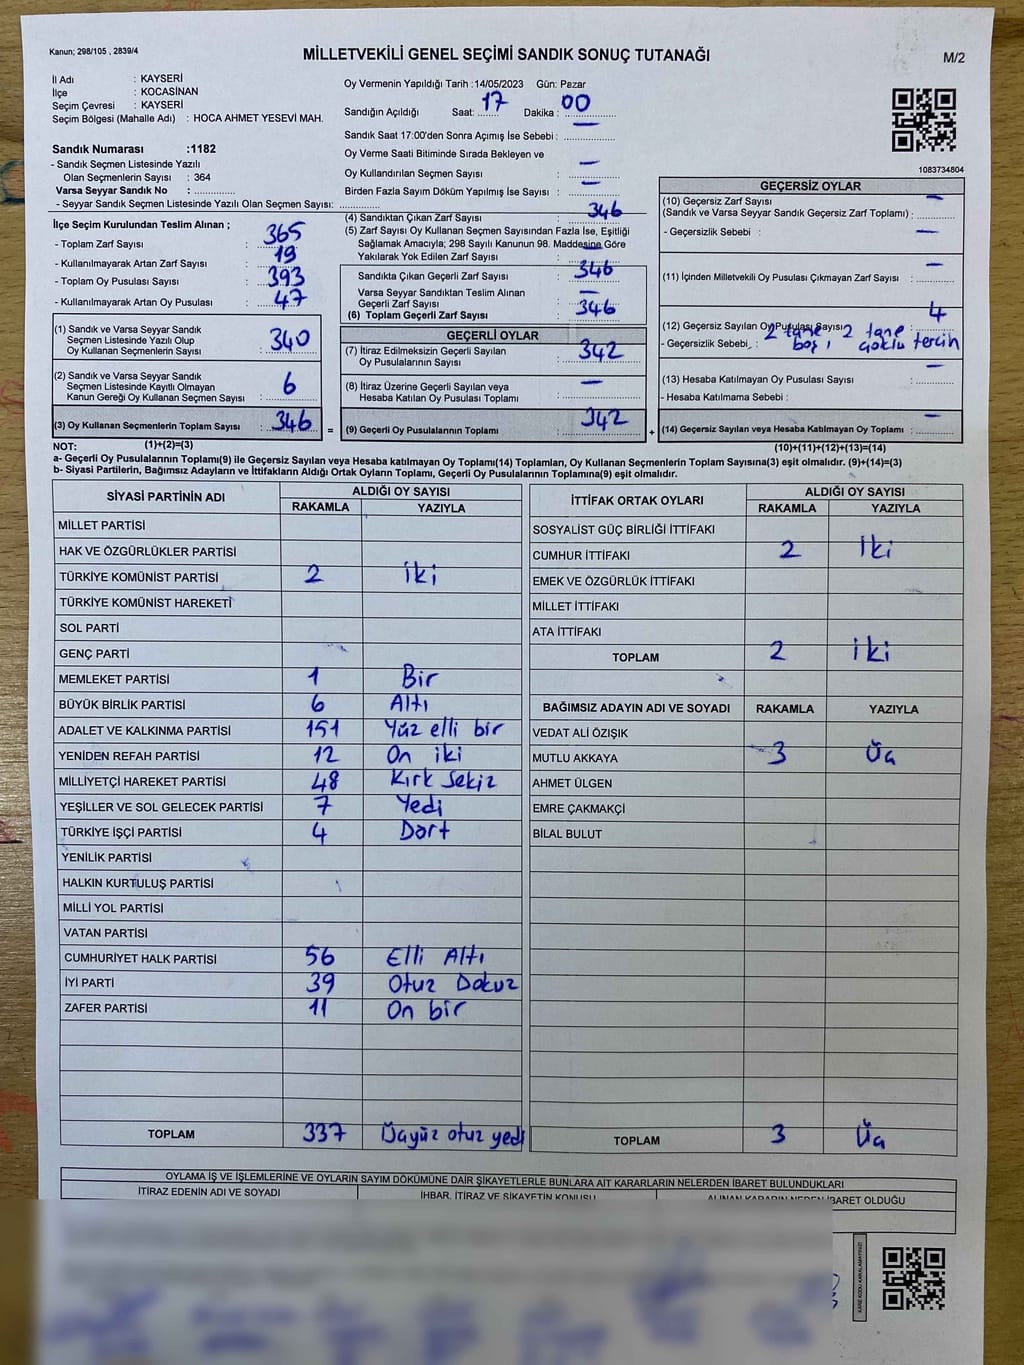 Kanun; 298/105 , 2839/4
MİLLETVEKİLİ GENEL SEÇİMİ SANDIK SONUÇ TUTANAĞI
M/2
İl Adı : KAYSERİ
İlçe : KOCASİNAN
Seçim Çevresi : KAYSERİ
Seçim Bölgesi (Mahalle Adı) : HOCA AHMET YESEVİ MAH.
Sandık Numarası :1182
- Sandık Seçmen Listesinde Yazılı
Olan Seçmenlerin Sayısı : 364
Varsa Seyyar Sandık No : ..............
- Seyyar Sandık Seçmen Listesinde Yazılı Olan Seçmen Sayısı: ..............
Oy Vermenin Yapıldığı Tarih :14/05/2023 Gün: Pazar
Sandığın Açıldığı Saat: 17 Dakika : 00
Sandık Saat 17:00'den Sonra Açımış İse Sebebi : —
Oy Verme Saati Bitiminde Sırada Bekleyen ve
Oy Kullandırılan Seçmen Sayısı : —
Birden Fazla Sayım Döküm Yapılmış İse Sayısı : —
1083734804
İlçe Seçim Kurulundan Teslim Alınan ;
- Toplam Zarf Sayısı : 365
- Kullanılmayarak Artan Zarf Sayısı : 19
- Toplam Oy Pusulası Sayısı : 393
- Kullanılmayarak Artan Oy Pusulası : 47
(1) Sandık ve Varsa Seyyar Sandık
Seçmen Listesinde Yazılı Olup
Oy Kullanan Seçmenlerin Sayısı : 340
(2) Sandık ve Varsa Seyyar Sandık
Seçmen Listesinde Kayıtlı Olmayan
Kanun Gereği Oy Kullanan Seçmen Sayısı : 6
(3) Oy Kullanan Seçmenlerin Toplam Sayısı : 346 =
(4) Sandıktan Çıkan Zarf Sayısı : 346
(5) Zarf Sayısı Oy Kullanan Seçmen Sayısından Fazla İse, Eşitliği
Sağlamak Amacıyla; 298 Sayılı Kanunun 98. Maddesine Göre
Yakılarak Yok Edilen Zarf Sayısı : —
Sandıkta Çıkan Geçerli Zarf Sayısı : 346
Varsa Seyyar Sandıktan Teslim Alınan
Geçerli Zarf Sayısı : —
(6) Toplam Geçerli Zarf Sayısı : 346
GEÇERLİ OYLAR
(7) İtiraz Edilmeksizin Geçerli Sayılan
Oy Pusulalarının Sayısı : 342
(8) İtiraz Üzerine Geçerli Sayılan veya
Hesaba Katılan Oy Pusulası Toplamı : —
(9) Geçerli Oy Pusulalarının Toplamı : 342 +
GEÇERSİZ OYLAR
(10) Geçersiz Zarf Sayısı
(Sandık ve Varsa Seyyar Sandık Geçersiz Zarf Toplamı) : —
- Geçersizlik Sebebi : —
(11) İçinden Milletvekili Oy Pusulası Çıkmayan Zarf Sayısı : —
(12) Geçersiz Sayılan Oy Pusulası Sayısı : 4
- Geçersizlik Sebebi : 2 tane boş, 2 tane çoklu tercih
(13) Hesaba Katılmayan Oy Pusulası Sayısı : —
- Hesaba Katılmama Sebebi :
(14) Geçersiz Sayılan veya Hesaba Katılmayan Oy Toplamı : —
NOT: (1)+(2)=(3) (10)+(11)+(12)+(13)=(14)
a- Geçerli Oy Pusulalarının Toplamı(9) ile Geçersiz Sayılan veya Hesaba katılmayan Oy Toplamı(14) Toplamları, Oy Kullanan Seçmenlerin Toplam Sayısına(3) eşit olmalıdır. (9)+(14)=(3)
b- Siyasi Partilerin, Bağımsız Adayların ve İttifakların Aldığı Ortak Oyların Toplamı, Geçerli Oy Pusulalarının Toplamına(9) eşit olmalıdır.
SİYASİ PARTİNİN ADI ALDIĞI OY SAYISI
RAKAMLA YAZIYLA
MİLLET PARTİSİ
HAK VE ÖZGÜRLÜKLER PARTİSİ
TÜRKİYE KOMÜNİST PARTİSİ 2 iki
TÜRKİYE KOMÜNİST HAREKETİ
SOL PARTİ
GENÇ PARTİ
MEMLEKET PARTİSİ 1 Bir
BÜYÜK BİRLİK PARTİSİ 6 Altı
ADALET VE KALKINMA PARTİSİ 151 Yüz elli bir
YENİDEN REFAH PARTİSİ 12 On iki
MİLLİYETÇİ HAREKET PARTİSİ 48 Kırk Sekiz
YEŞİLLER VE SOL GELECEK PARTİSİ 7 Yedi
TÜRKİYE İŞÇİ PARTİSİ 4 Dört
YENİLİK PARTİSİ
HALKIN KURTULUŞ PARTİSİ
MİLLİ YOL PARTİSİ
VATAN PARTİSİ
CUMHURİYET HALK PARTİSİ 56 Elli Altı
İYİ PARTİ 39 Otuz Dokuz
ZAFER PARTİSİ 11 On bir
TOPLAM 337 Üçyüz otuz yedi
İTTİFAK ORTAK OYLARI ALDIĞI OY SAYISI
RAKAMLA YAZIYLA
SOSYALİST GÜÇ BİRLİĞİ İTTİFAKI
CUMHUR İTTİFAKI 2 İki
EMEK VE ÖZGÜRLÜK İTTİFAKI
MİLLET İTTİFAKI
ATA İTTİFAKI
TOPLAM 2 iki
BAĞIMSIZ ADAYIN ADI VE SOYADI RAKAMLA YAZIYLA
VEDAT ALİ ÖZIŞIK
MUTLU AKKAYA 3 Üç
AHMET ÜLGEN
EMRE ÇAKMAKÇİ
BİLAL BULUT
TOPLAM 3 Üç
OYLAMA İŞ VE İŞLEMLERİNE VE OYLARIN SAYIM DÖKÜMÜNE DAİR ŞİKAYETLERLE BUNLARA AİT KARARLARIN NELERDEN İBARET BULUNDUKLARI
İTİRAZ EDENİN ADI VE SOYADI İHBAR, İTİRAZ VE ŞİKAYETİN KONUSU ALINAN KARARIN NEDEN İBARET OLDUĞU
KARE KODU KARALAMAYINIZ!